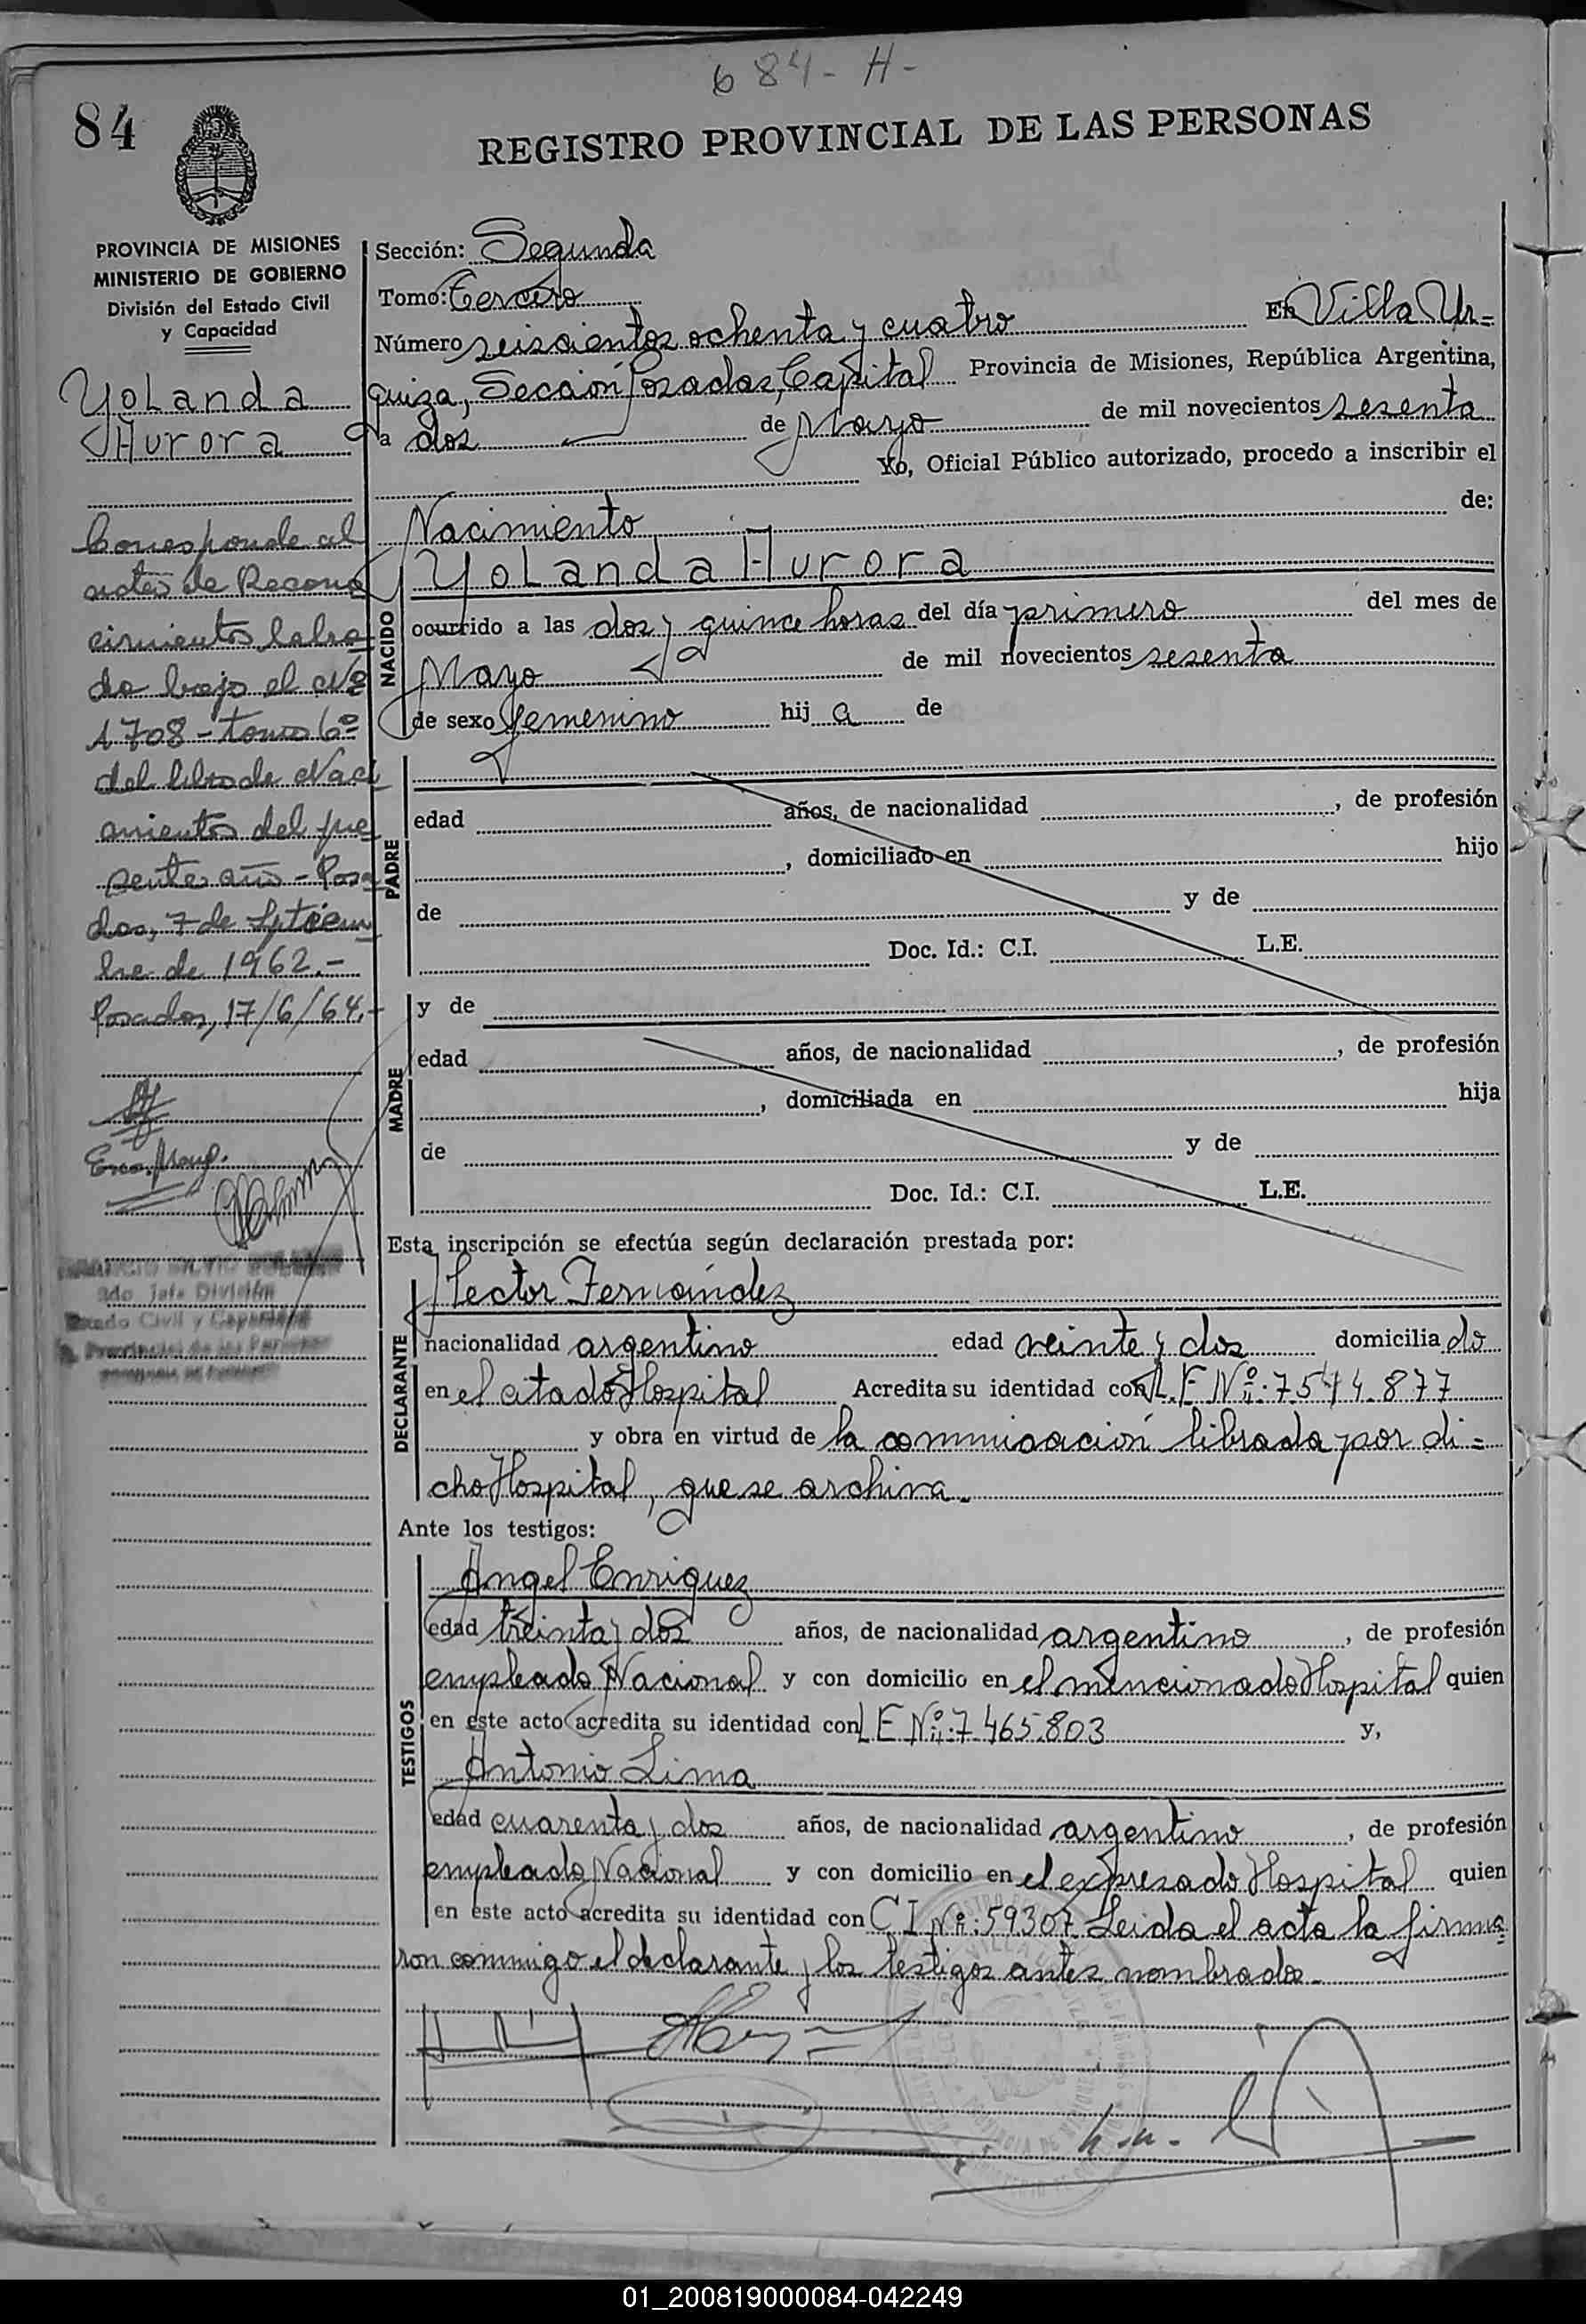 684-H-
84
REGISTRO PROVINCIAL DE LAS PERSONAS
PROVINCIA DE MISIONES
MINISTERIO DE GOBIERNO
División del Estado Civil
y Capacidad
Yolanda
Aurora
Corresponde al
acta de Recono
cimiento labra
da bajo el Nº
1708 - tomo 6º
del libro de Naci
mientos del pre
sente año - Posa
das, 7 de Septiem
bre de 1962.-
Posadas, 17/6/64.-
Sección: Segunda
Tomo: Tercero
Número seiscientos ochenta y cuatro En Villa Ur=
quiza, Sección Posadas, Capital Provincia de Misiones, República Argentina,
a dos de Mayo de mil novecientos sesenta
Yo, Oficial Público autorizado, procedo a inscribir el
Nacimiento de:
NACIDO
Yolanda Aurora
ocurrido a las dos y quince horas del día primero del mes de
Mayo de mil novecientos sesenta
de sexo femenino hija de
PADRE
edad años, de nacionalidad , de profesión
, domiciliado en hijo
de y de
Doc. Id.: C.I. L.E.
MADRE
y de
edad años, de nacionalidad , de profesión
, domiciliada en hija
de y de
Doc. Id.: C.I. L.E.
Esta inscripción se efectúa según declaración prestada por:
DECLARANTE
Hector Fernández
nacionalidad argentino edad veinte y dos domiciliado
en el citado Hospital Acredita su identidad con L.E Nº: 7544.877
y obra en virtud de la comunicación librada por di=
cho Hospital, que se archiva.
Ante los testigos:
TESTIGOS
Angel Enriquez
edad treinta y dos años, de nacionalidad argentino , de profesión
empleado Nacional y con domicilio en el mencionado Hospital quien
en este acto acredita su identidad con L E Nº: 7.465.803 y,
Antonio Lima
edad cuarenta y dos años, de nacionalidad argentino , de profesión
empleado Nacional y con domicilio en el expresado Hospital quien
en este acto acredita su identidad con C I Nº: 59307 Leida el acta la firma
ron conmigo el declarante y los testigos antes nombrados.
2do Jefe División
Estado Civil y Capacidad
R. Provincial de las Personas
01_200819000084-042249